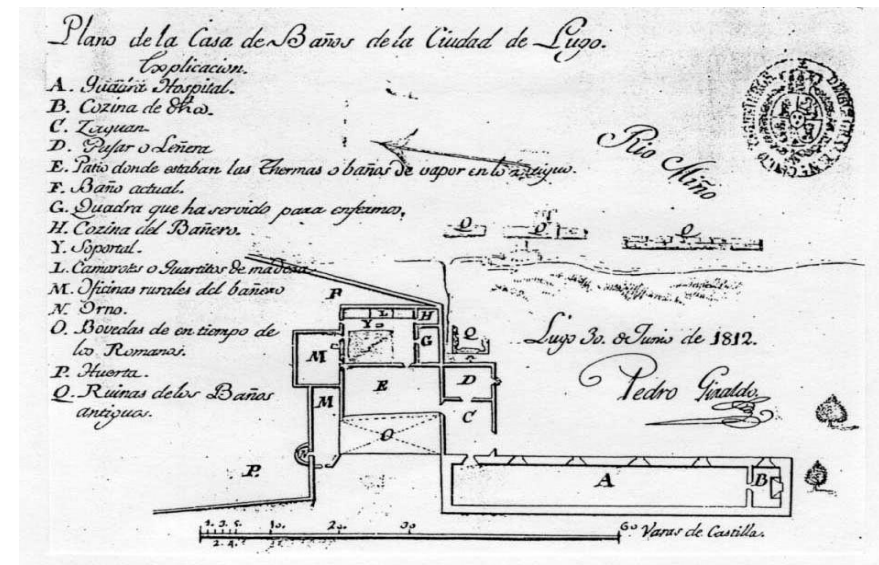 Plano de la Casa de Baños de la Ciudad de Lugo.
Explicacion.
A. Hospital.
B. Cozina de dho.
C. Zaguan.
D. Pajar o Leñera
E. Patio donde estaban las Thermas o baños de vapor en lo antiguo.
F. Baño actual.
G. Quadra que ha servido para enfermos.
H. Cozina del Bañero.
Y. Soportal.
L. Camarotes o quartitos de madera.
M. Oficinas rurales del bañero
N. Orno.
O. Bovedas de en tiempo de
los Romanos.
P. Huerta.
Q. Ruinas de los Baños
antiguos.
Rio Miño
Q
Q
Q
P
L
H
Y
G
Q
M
E
D
M
C
O
N
P.
A
B
Lugo 30. de Junio de 1812.
Pedro Giraldo
1. 3. 5. 10. 20. 30 60 Varas de Castilla.
2. 4.